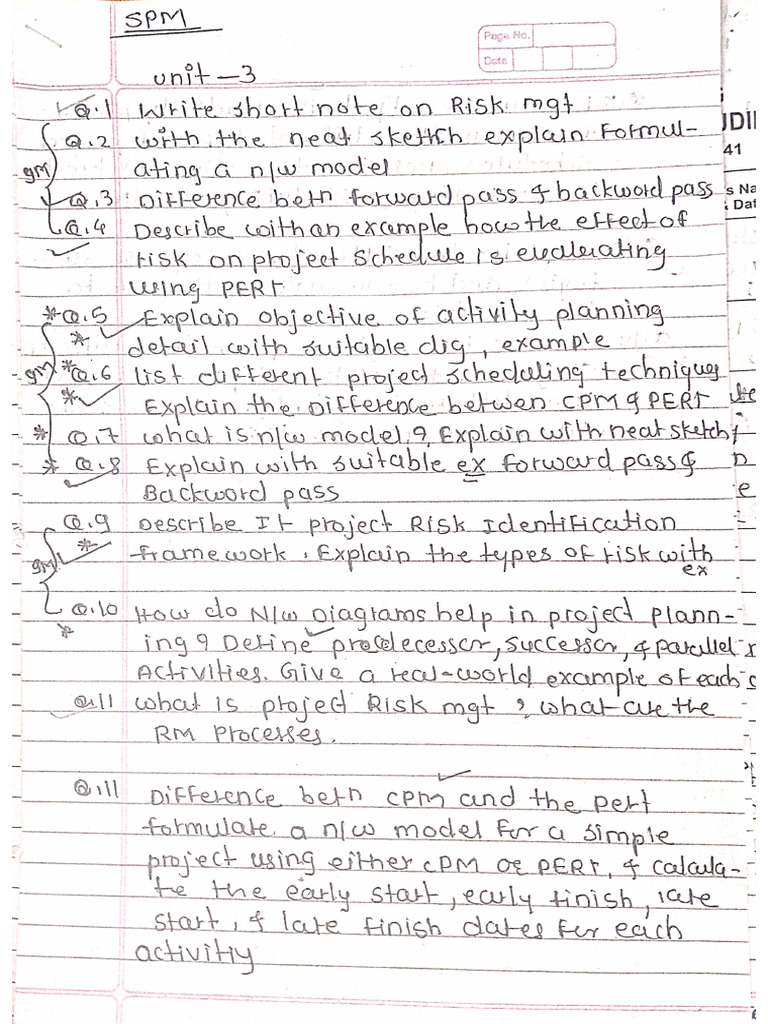 SPM
Page No.
Date
Unit - 3
Q.1 Write short note on Risk mgt
Q.2 With the neat sketch explain Formul-
ating a n/w model
9M
Q.3 Difference betn forward pass & backword pass
Q.4 Describe with an example how the effect of
risk on project schedule is evalerating
using PERT
*Q.5 Explain objective of activity planning
* detail with suitable dig, example
9M *Q.6 List different project scheduling techniques
* Explain the Difference betwen CPM & PERT
* Q.7 what is n/w model? Explain with neat sketch
* Q.8 Explain with suitable ex forward pass &
Backword pass
Q.9 Describe It project Risk Identification
9M * framework. Explain the types of risk with
ex
Q.10 How do N/w Diagrams help in project plann-
* ing? Define predecessor, successor, & parallel
Activities. Give a real-world example of each
Q.11 What is project Risk mgt ? what are the
RM Processes.
Q.11 Difference betn CPM and the pert
formulate a n/w model for a simple
project using either CPM or PERT, & calcula-
te the early start, early finish, late
start, & late finish dates for each
activitiy
UDI
41
s Na
Dat